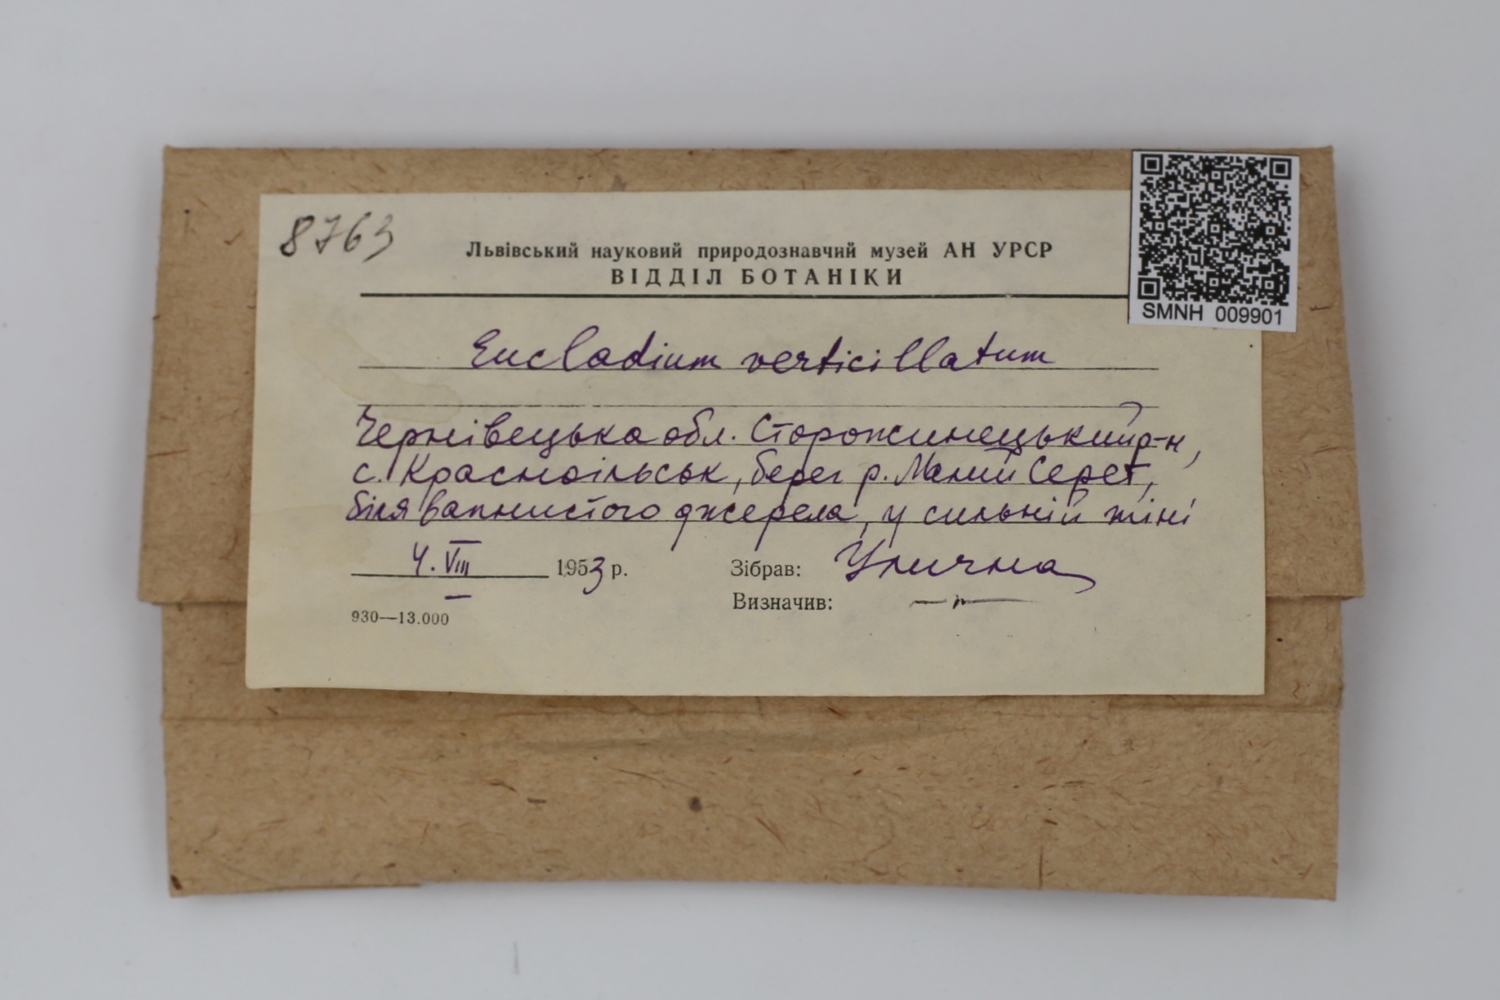 8763
Львівський науковий природознавчий музей АН УРСР
ВІДДІЛ БОТАНІКИ
SMNH 009901
Eucladium verticillatum
Чернівецька обл. Сторожинецький р-н,
с. Красноільськ, берег р. Малий Серет,
біля вапнистого джерела, у сильній тіні
4. VIII 1953 р.
Зібрав: Улична
Визначив: —„—
930—13.000